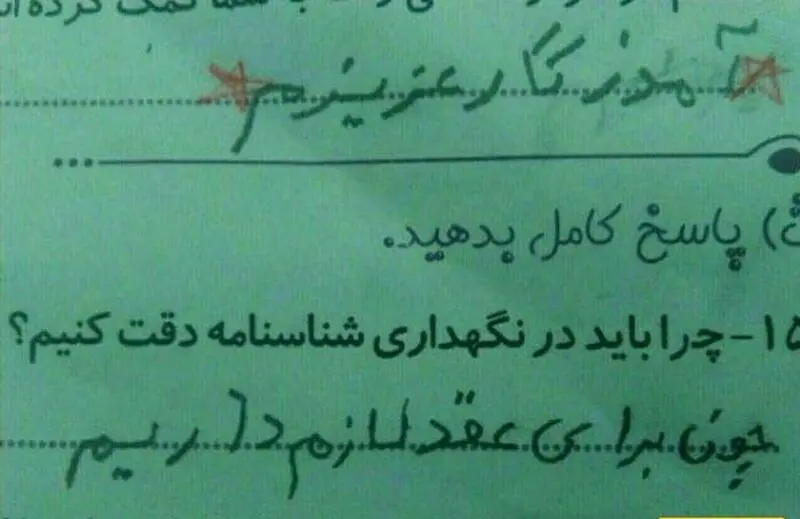 شما کمک کرده ا
آموزگار عزیزم
...
ث) پاسخ کامل بدهید.
۱۵- چرا باید در نگهداری شناسنامه دقت کنیم؟
چون برای عقد لازم داریم